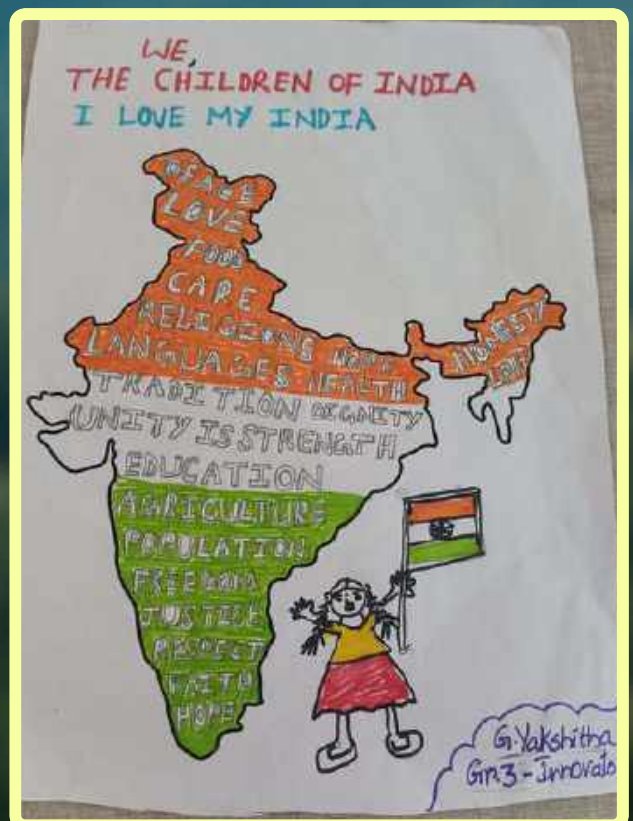 WE,
THE CHILDREN OF INDIA
I LOVE MY INDIA
PEACE
LOVE
FOOD
CARE
RELIGIONS
LANGUAGES HEALTH
HONESTY
LOVE
TRADITION DIGNITY
UNITY IS STRENGTH
EDUCATION
AGRICULTURE
POPULATION
FREEDOM
JUSTICE
RESPECT
FAITH
HOPE
G.Yakshitha
Gr.3-Innovato